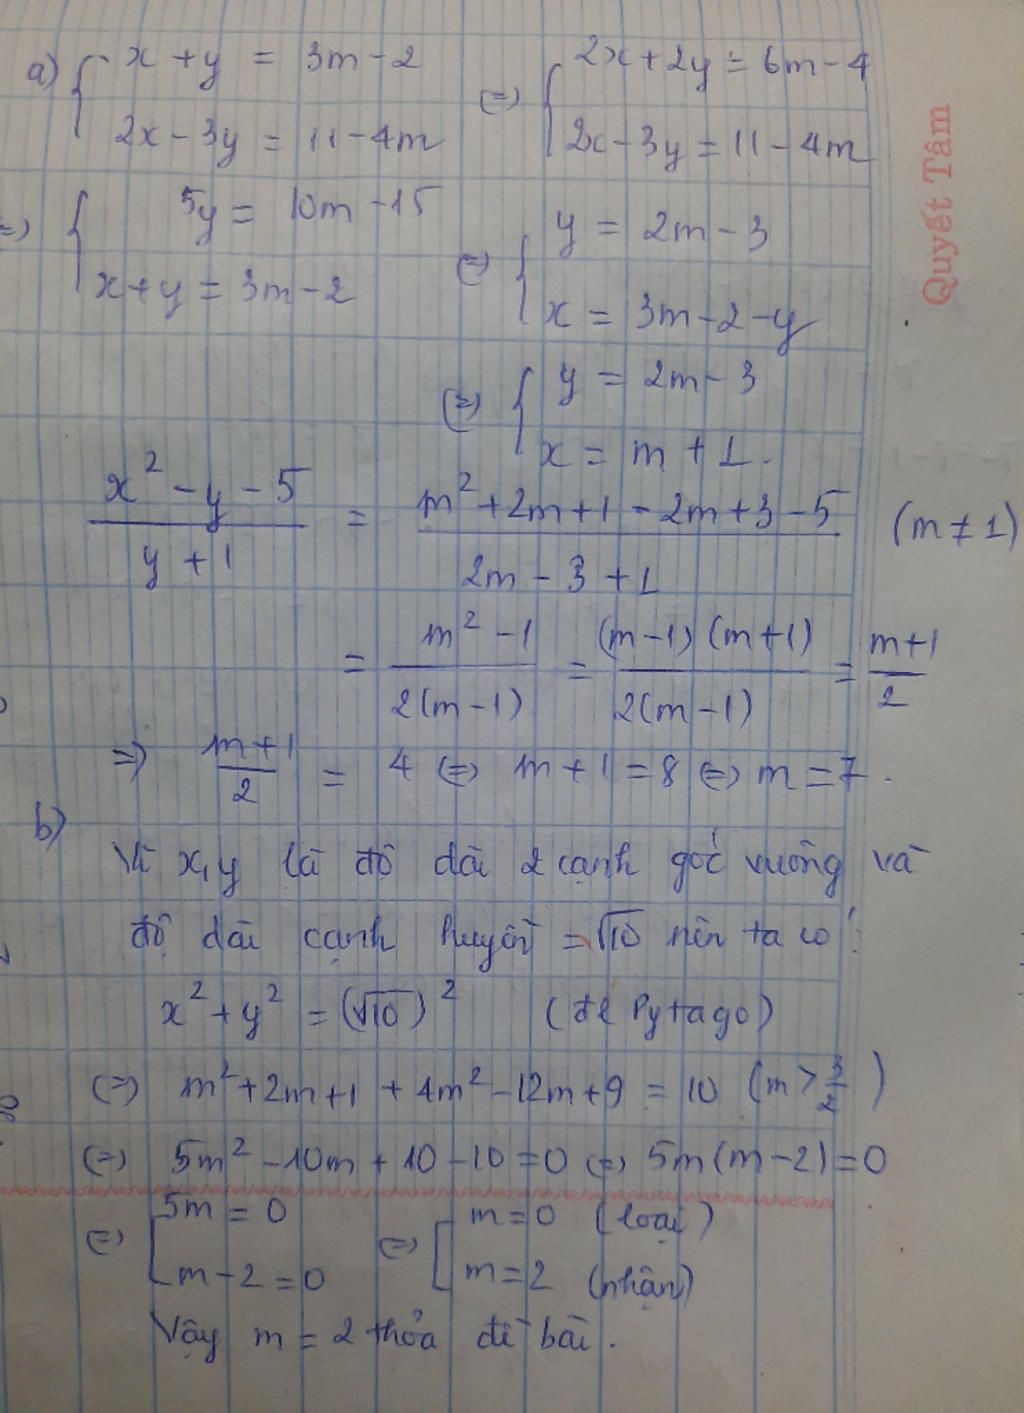 a) { x + y = 3m - 2
2x - 3y = 11 - 4m
(=) { 2x + 2y = 6m - 4
2x - 3y = 11 - 4m
(=) { 5y = 10m - 15
x + y = 3m - 2
(=) { y = 2m - 3
x = 3m - 2 - y
(=) { y = 2m - 3
x = m + 1.
(x² - y - 5)/(y + 1) = (m² + 2m + 1 - 2m + 3 - 5)/(2m - 3 + 1) (m ≠ 1)
= (m² - 1)/(2(m - 1)) = ((m - 1)(m + 1))/(2(m - 1)) = (m + 1)/2
=> (m + 1)/2 = 4 (=) m + 1 = 8 (=) m = 7.
b)
Vì x, y là độ dài 2 cạnh góc vuông và
độ dài cạnh huyền = √10 nên ta có :
x² + y² = (√10)² (đl Pytago)
(=) m² + 2m + 1 + 4m² - 12m + 9 = 10 (m > 3/2)
(=) 5m² - 10m + 10 - 10 = 0 (=) 5m(m - 2) = 0
(=) [ 5m = 0
m - 2 = 0
(=) [ m = 0 (loại)
m = 2 (nhận)
Vậy m = 2 thỏa đề bài.
Quyết Tâm